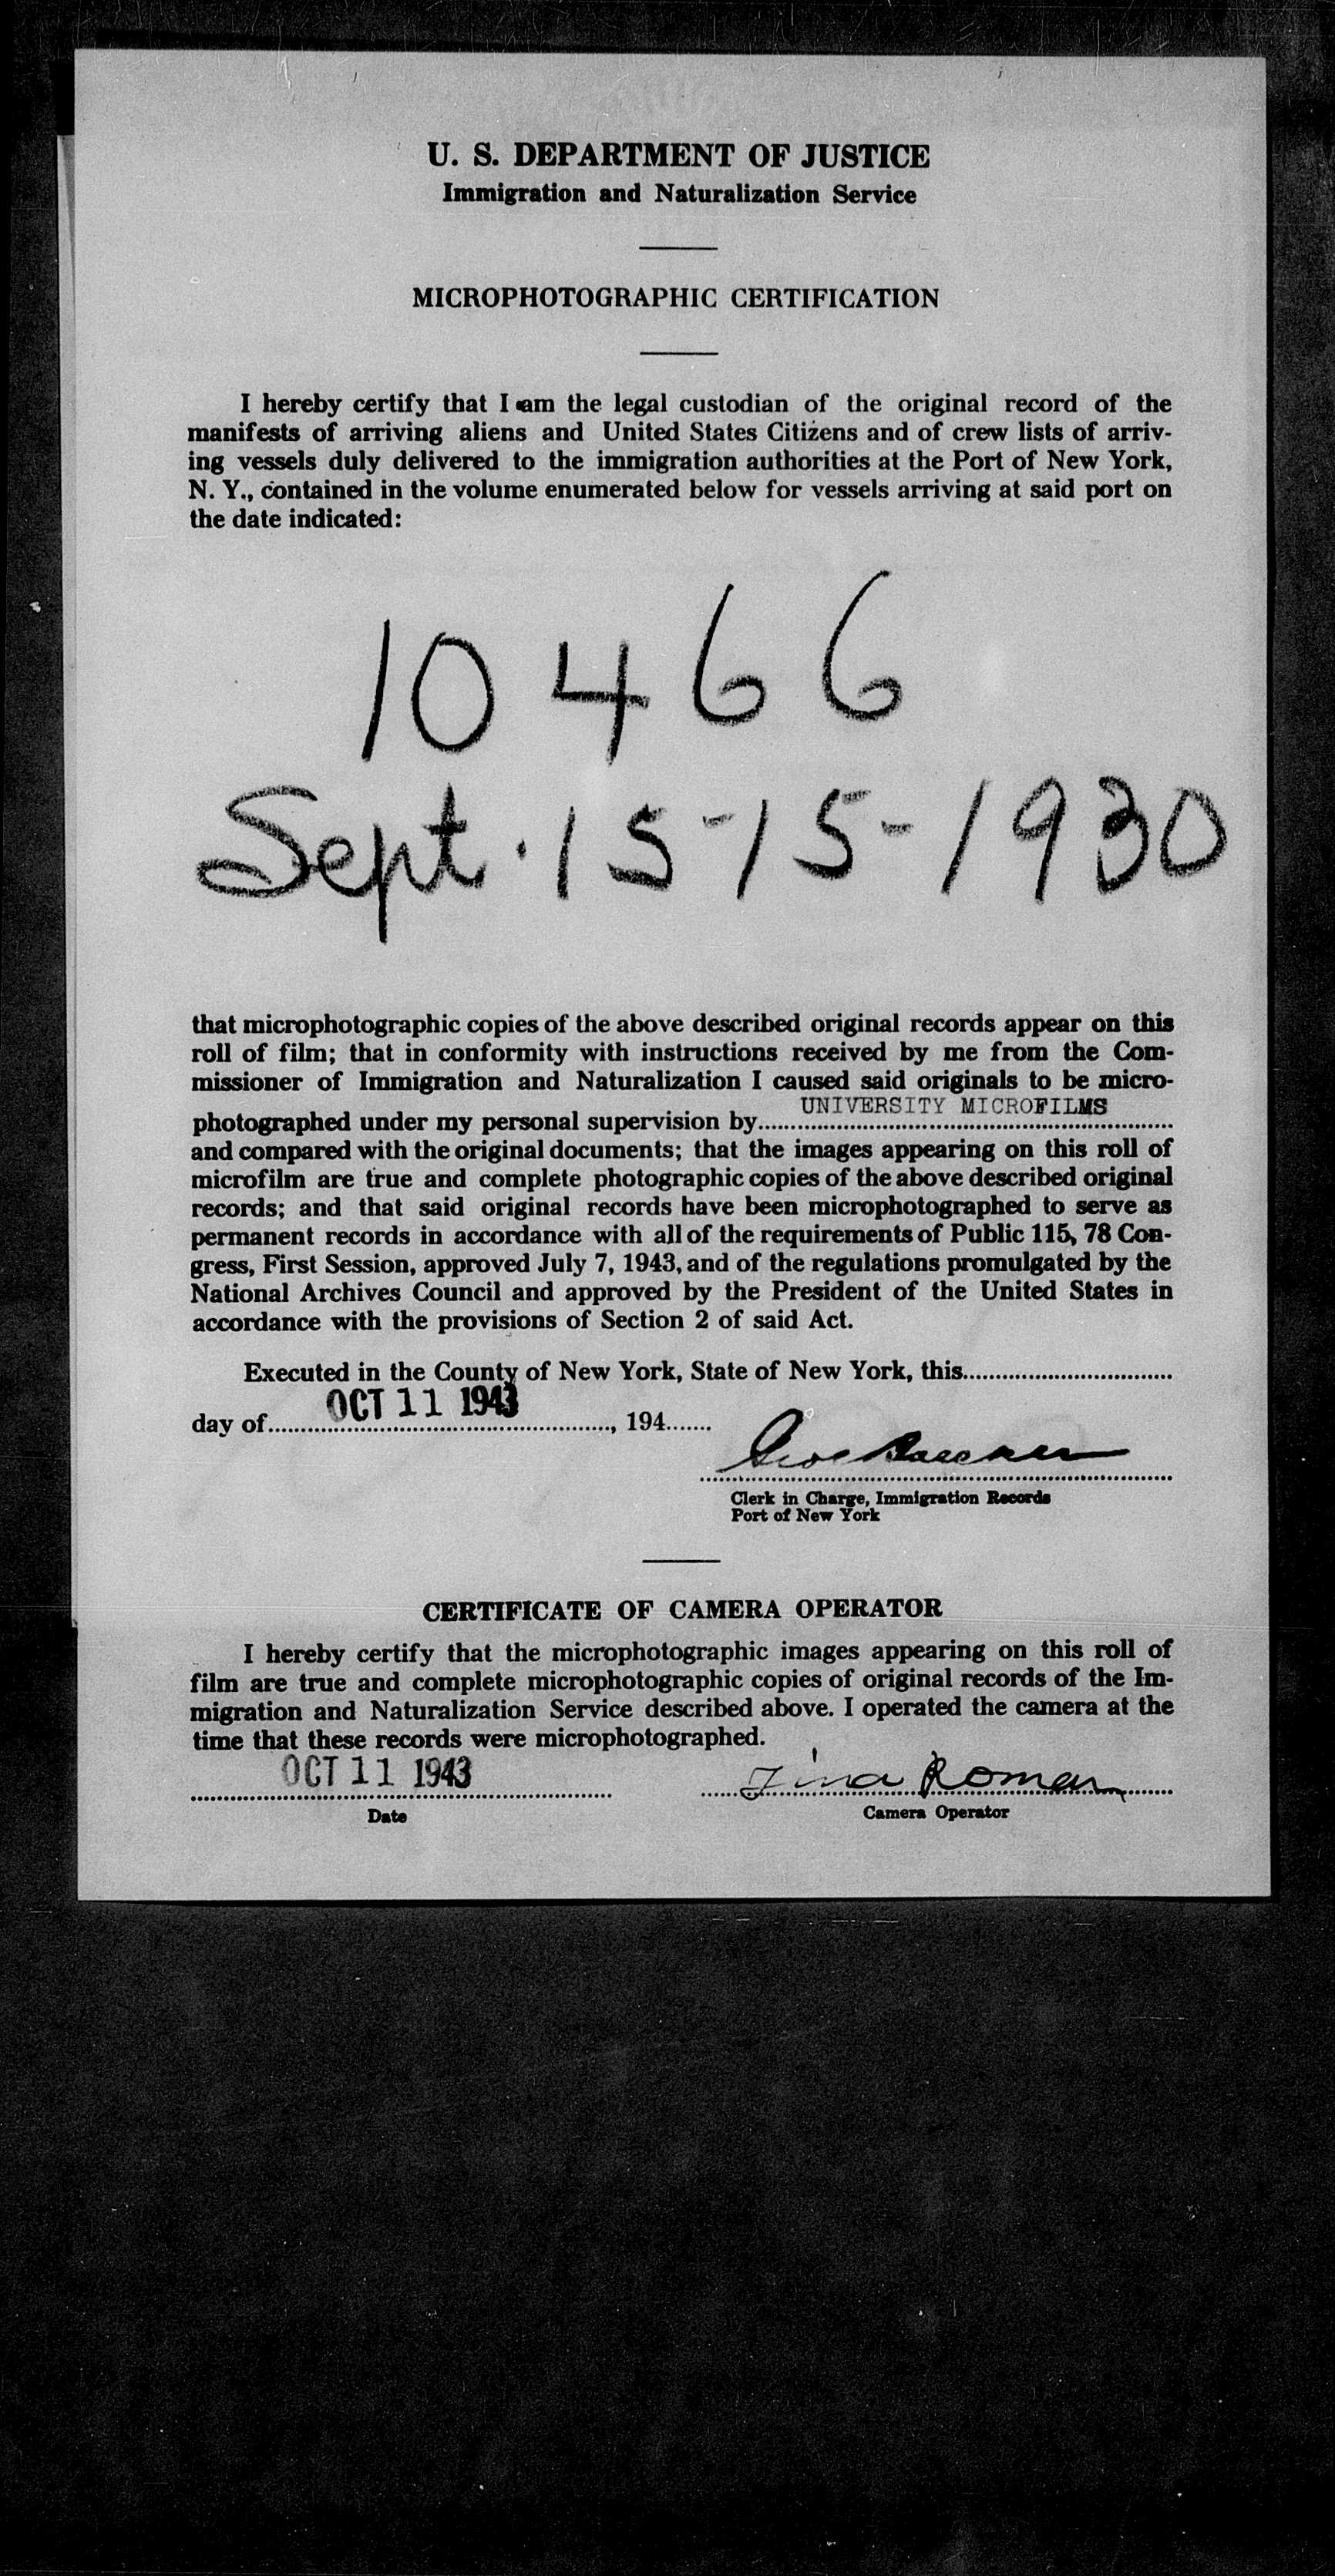 U. S. DEPARTMENT OF JUSTICE
Immigration and Naturalization Service
MICROPHOTOGRAPHIC CERTIFICATION
I hereby certify that I am the legal custodian of the original record of the
manifests of arriving aliens and United States Citizens and of crew lists of arriv-
ing vessels duly delivered to the immigration authorities at the Port of New York,
N. Y., contained in the volume enumerated below for vessels arriving at said port on
the date indicated:
10466
Sept. 15-15-1930
that microphotographic copies of the above described original records appear on this
roll of film; that in conformity with instructions received by me from the Com-
missioner of Immigration and Naturalization I caused said originals to be micro-
photographed under my personal supervision by UNIVERSITY MICROFILMS
and compared with the original documents; that the images appearing on this roll of
microfilm are true and complete photographic copies of the above described original
records; and that said original records have been microphotographed to serve as
permanent records in accordance with all of the requirements of Public 115, 78 Con-
gress, First Session, approved July 7, 1943, and of the regulations promulgated by the
National Archives Council and approved by the President of the United States in
accordance with the provisions of Section 2 of said Act.
Executed in the County of New York, State of New York, this
day of OCT 11 1943, 194
Clerk in Charge, Immigration Records
Port of New York
CERTIFICATE OF CAMERA OPERATOR
I hereby certify that the microphotographic images appearing on this roll of
film are true and complete microphotographic copies of original records of the Im-
migration and Naturalization Service described above. I operated the camera at the
time that these records were microphotographed.
OCT 11 1943 Tina Roman
Date Camera Operator